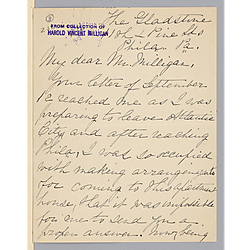 FROM COLLECTION OF
HAROLD VINCENT MILLIGAN
The Gladstone
Pine Sts
Phila, Pa.
My dear Mr. Milligan,
Your letter of September
reached me as I was
preparing to leave Atlantic
City and after reaching
Phila, I was so occupied
with making arrangements
for coming to this apartment
house, that it was impossible
for me to send you a
proper answer. Now, being